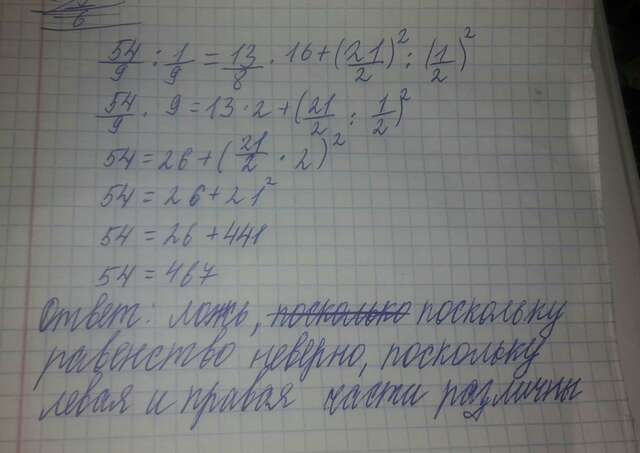 6
54/9 : 1/9 = 13/8 · 16 + (21/2)² : (1/2)²
54/9 · 9 = 13 · 2 + (21/2 : 1/2)²
54 = 26 + (21/2 · 2)²
54 = 26 + 21²
54 = 26 + 441
54 = 467
Ответ: ложь, посколько поскольку
равенство неверно, поскольку
левая и правая части различны